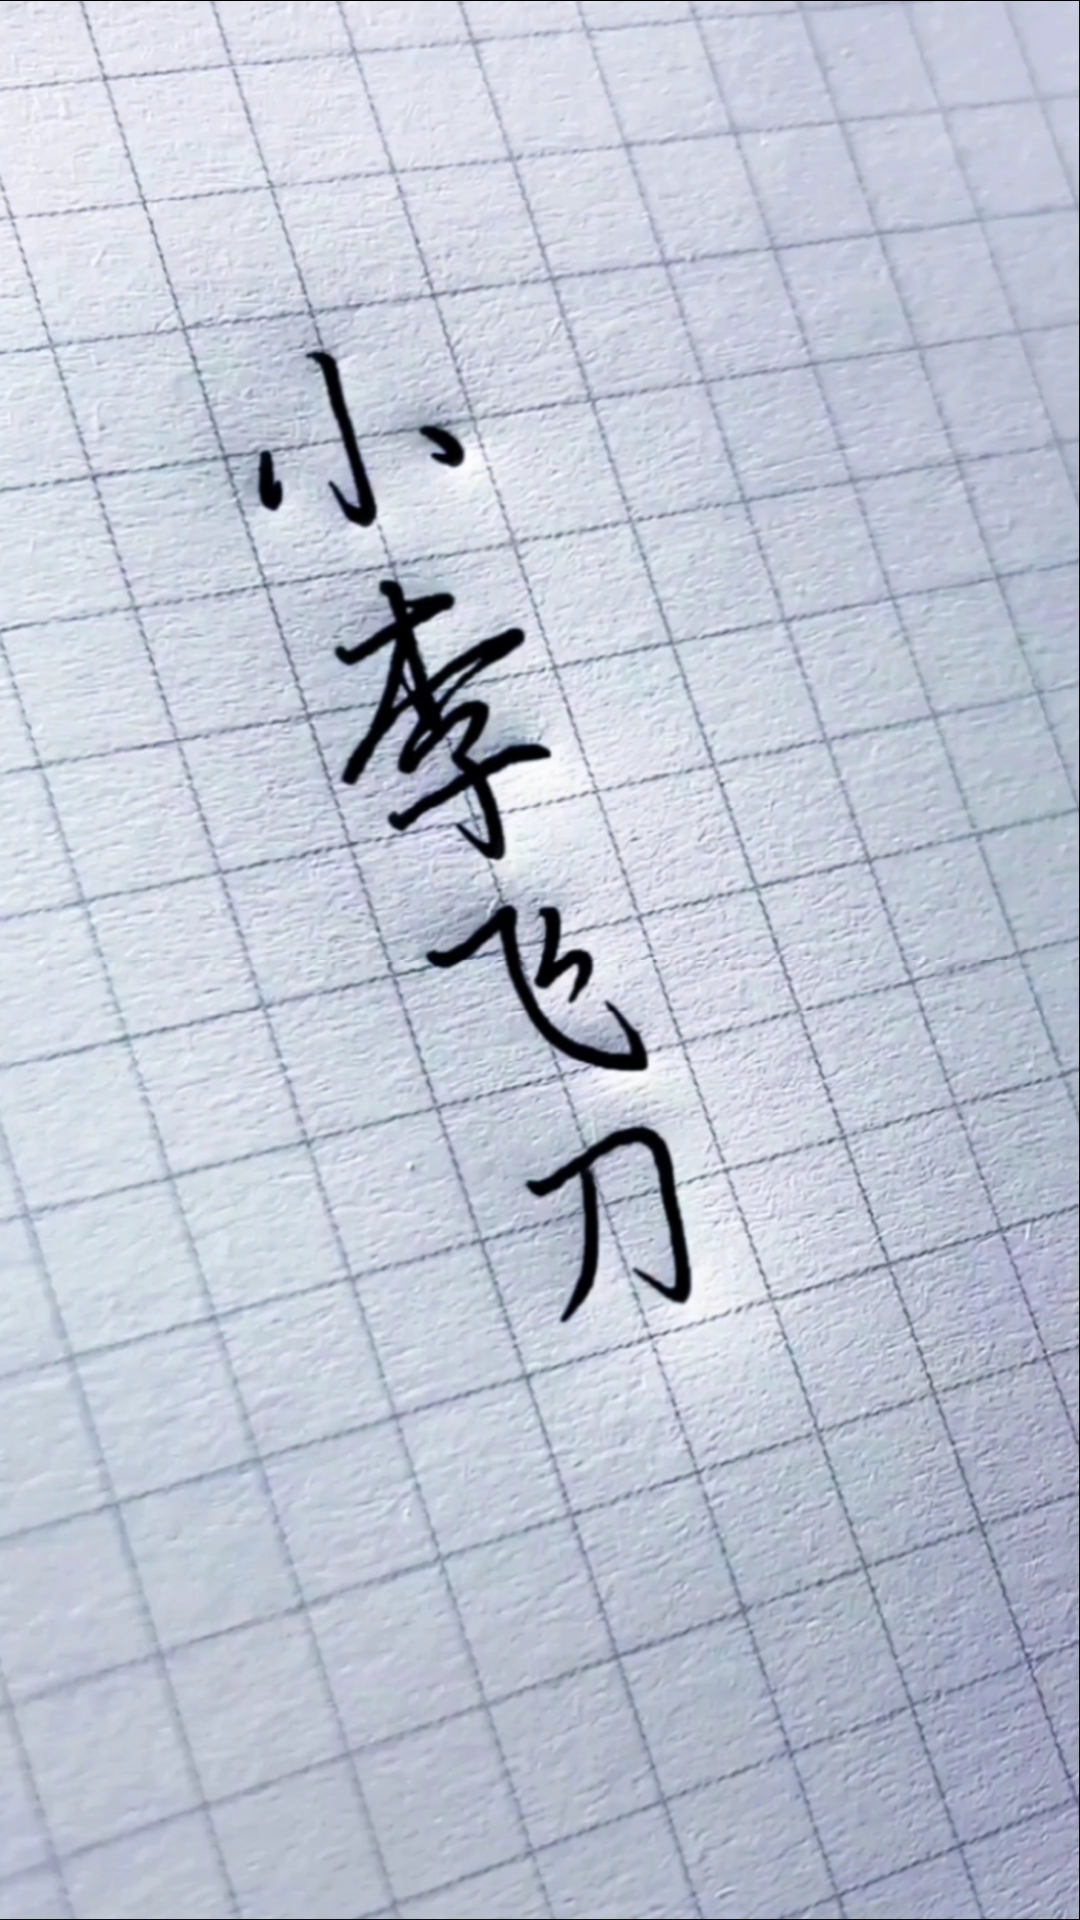 小李飞刀